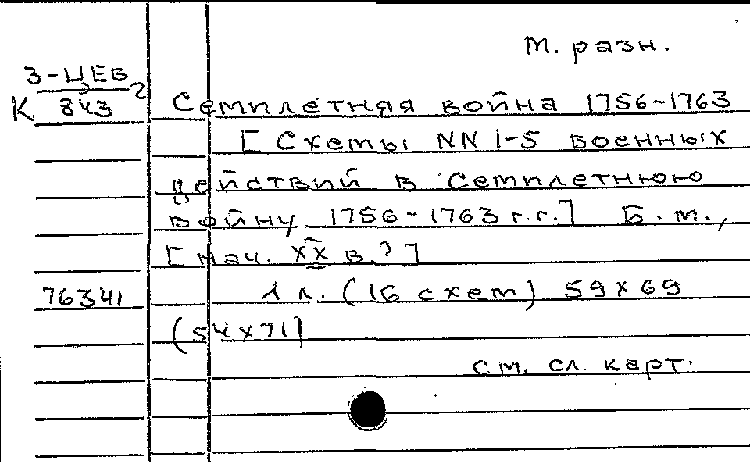 м. разн.
З-ЦЕВ 2
К 843
Семилетняя война 1756-1763
[Схемы NN 1-5 военных
действий в Семилетнюю
войну 1756-1763 г.г.] Б.м.,
[нач. XX в.?]
76341
1 л. (16 схем) 59x69
(54x71)
см. сл. карт.